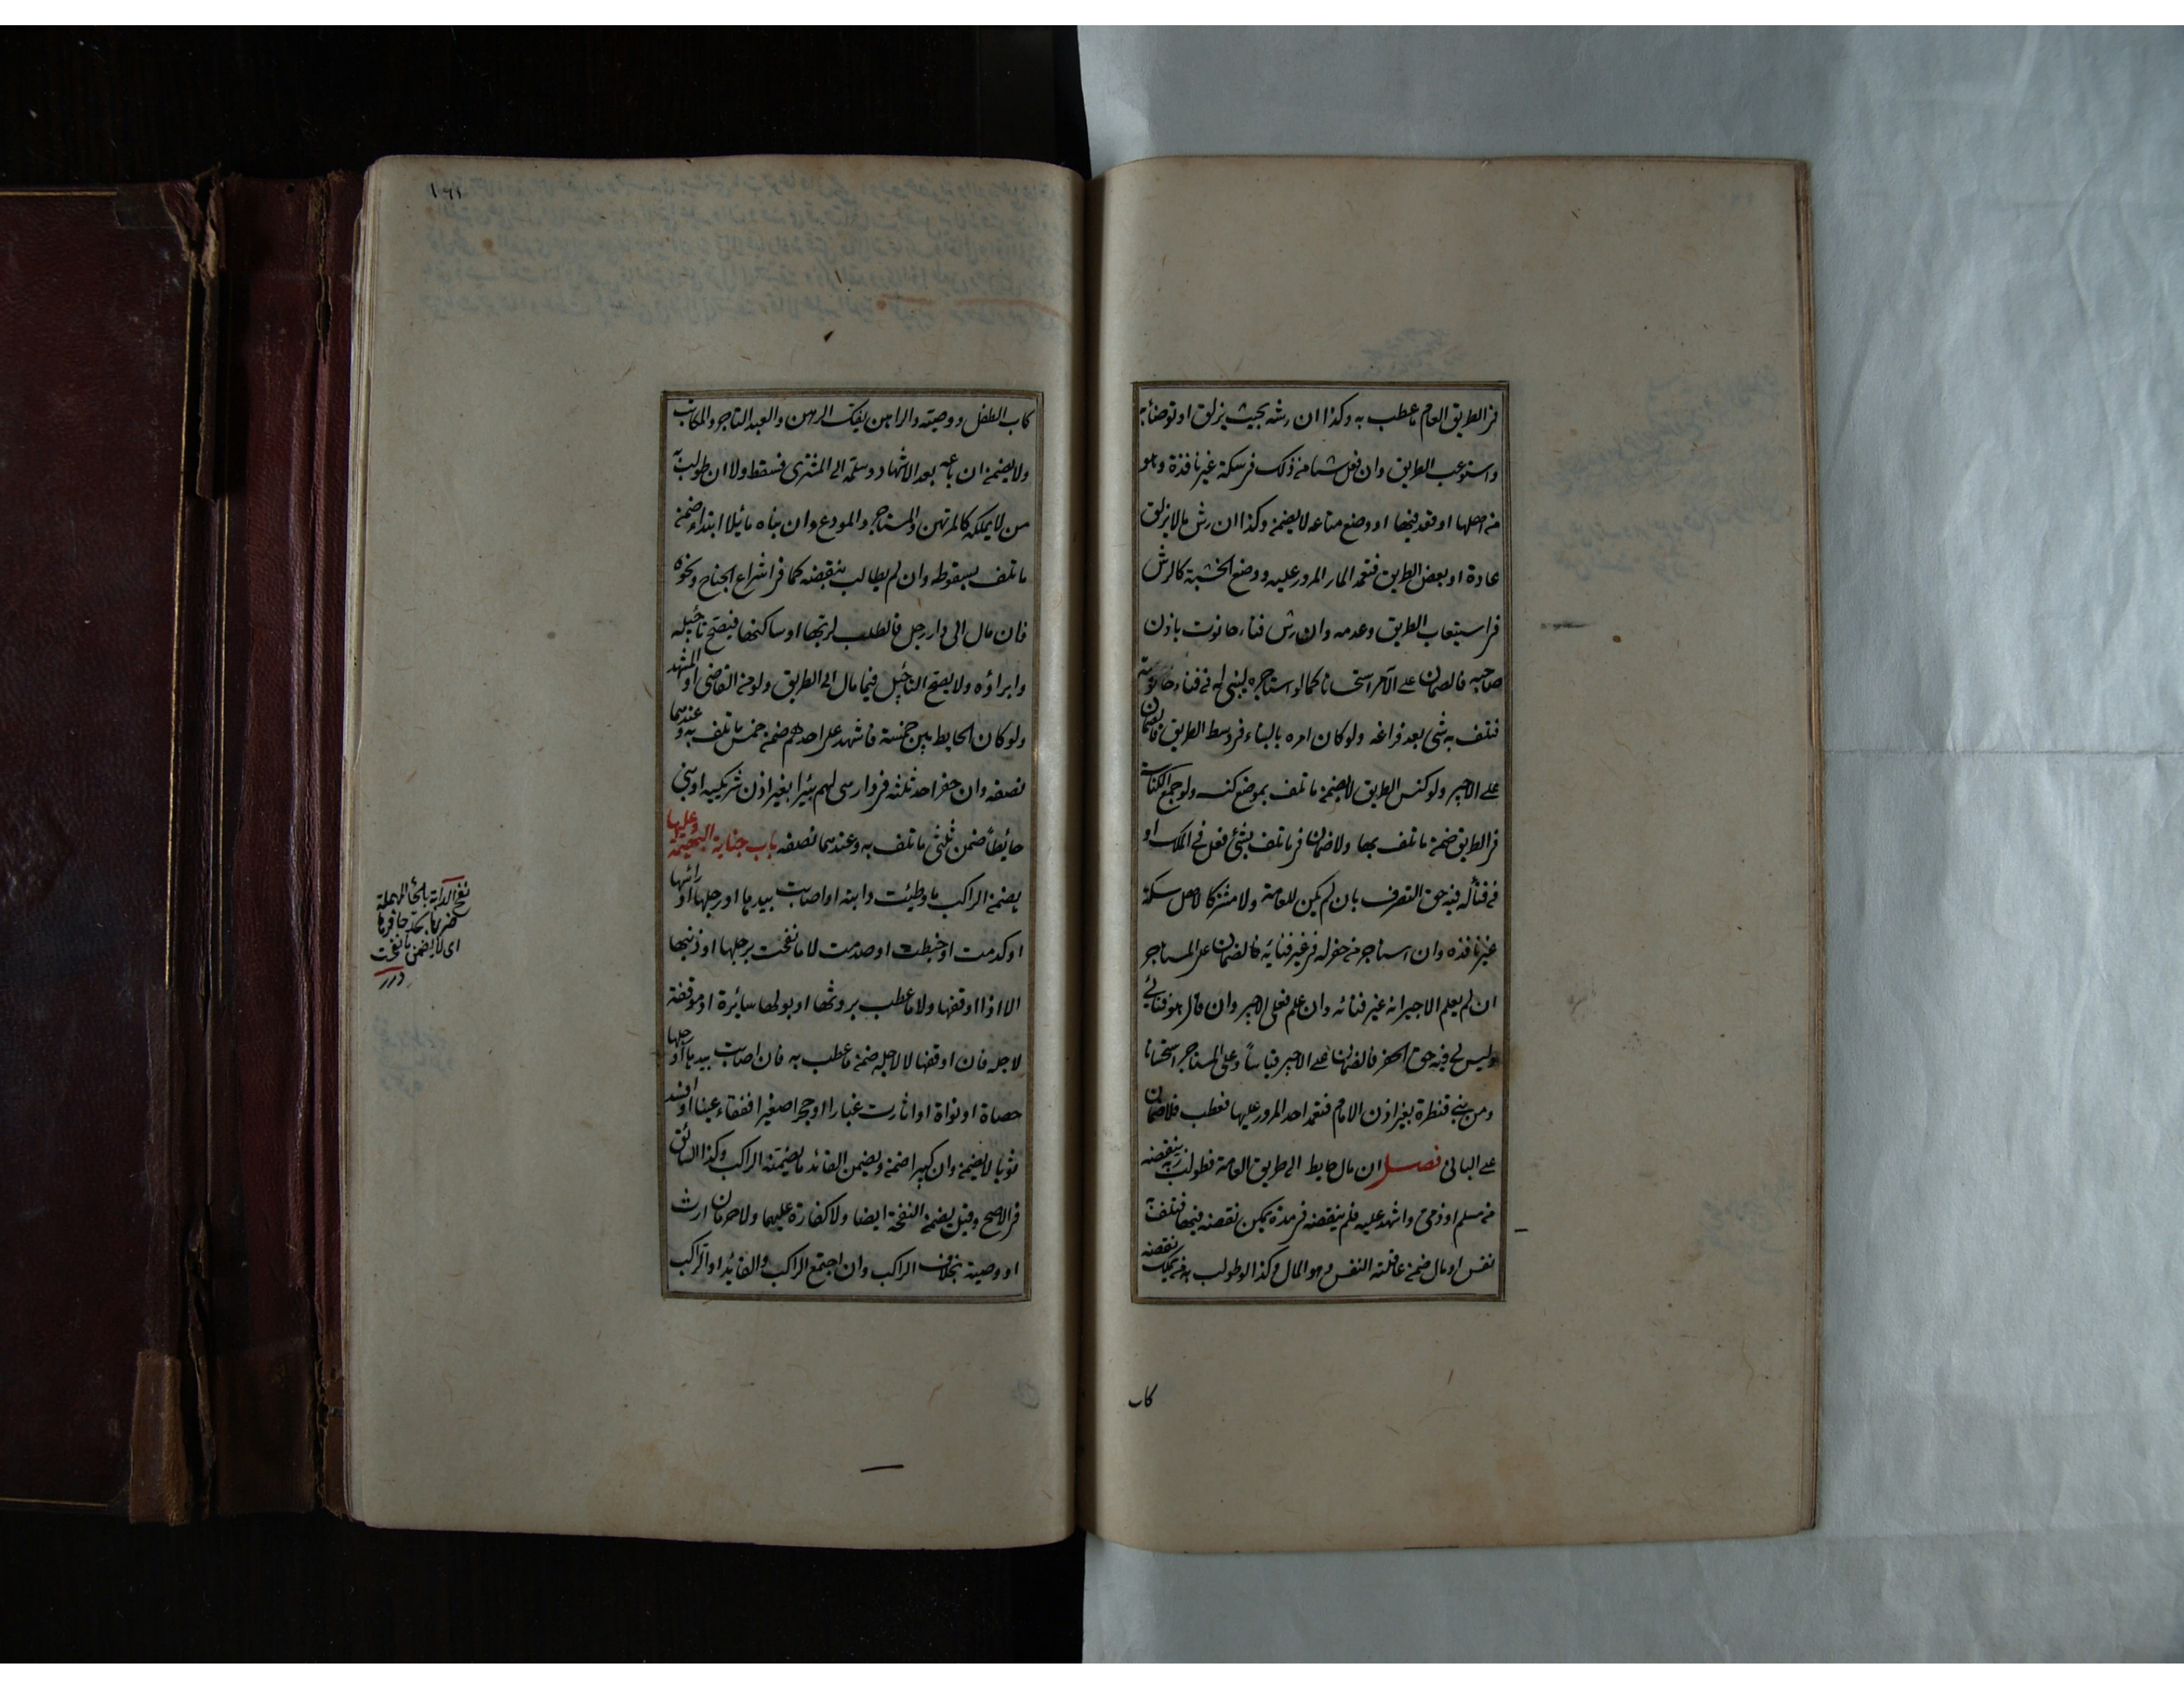 فى الطريق العام ما عطب به وكذا ان رشه بحيث يزلق او توضأ به
واستوعب الطريق وان فعل شيئا من ذلك فى سكة غير نافذة وهو
من اهلها او قعد فيها او وضع متاعه لا يضمن وكذا ان رش ما لا يزلق
عادة او بعض الطريق فتعمد المار المرور عليه ووضع الخشبة كالرش
فى استيعاب الطريق وعدمه وان رش فناء حانوت باذن
صاحبه فالضمان على الآمر استحسانا كما لو استاجره ليبنى له فى فناء حانوته
فتلف به شئ بعد فراغه ولو كان امره بالبناء فى وسط الطريق فالضمان
على الاجير ولو كنس الطريق لا يضمن ما تلف بموضع كنسه ولو جمع الكناسة
فى الطريق ضمن ما تلف بها ولا ضمان فى ما تلف بشئ فعل فى الملك او
فى فناء له فيه حق التصرف بان لم يكن للعامة ولا مشتركا لاهل سكة
غير نافذه وان استاجر من حفر له فى غير فنائه فالضمان على المستاجر
ان لم يعلم الاجير انه غير فنائه وان علم فعلى الاجير وان قال هو فنائى
وليس لى فيه حق الحفر فالضمان على الاجير قياسا وعلى المستاجر استحسانا
ومن بنى قنطرة بغير اذن الامام فتعمد احد المرور عليها فعطب فلا ضمان
على البانى فصل ان مال حايط الى طريق العامة فطولب ربه بنقضه
من مسلم او ذمى واشهد عليه فلم ينقضه فى مدة يمكن نقضه فيها فتلف به
نفس او مال ضمن عاقلته النفس وهو المال وكذا لو طولب به من يملك نقضه
كاب
كاب الطفل ووصيته والراهن بفك الرهن والعبد التاجر والمكاتب
ولا يضمن ان باعه بعد الاشهاد وسلمه الى المشترى فسقط ولا ان طولب به
من لا يملكه كالمرتهن والمستاجر والمودع وان بناه مائلا ابتداء ضمن
ما تلف بسقوطه وان لم يطالب بنقضه كما فى اشراع الجناح ونحوه
فان مال الى دار رجل فالطلب لربها او ساكنها فيصح تأجيله
وابراؤه ولا يصح التأجيل فيما مال الى الطريق ولو من القاضى او المشهد
ولو كان الحايط بين خمسة فاشهد على احدهم ضمن خمس ما تلف به وعندهما
نصفه وان حفر احد ثلثة فى دار هى لهم بئرا بغير اذن شريكيه او بنى
حائطا ضمن ثلثى ما تلف به وعندهما نصفه باب جناية البهيمة وعليها
يضمن الراكب ما وطئت دابته او اصابت بيدها او رجلها او راسها
او كدمت او خبطت او صدمت لا ما نفحت برجلها او ذنبها
الا اذا اوقفها ولا ما عطب بروثها او بولها سائرة او موقفة
لاجله فان اوقفها لا لاجله ضمن ما عطب به فان اصابت بيدها او رجلها
حصاة او نواة او اثارت غبارا او حجرا صغيرا ففقاء عينا او افسد
ثوبا لا يضمن وان كبيرا ضمن ويضمن القائد ما يضمنه الراكب وكذا السائق
فى الاصح وقيل يضمن النفحة ايضا ولا كفارة عليهما ولا حرمان ارث
او وصية بخلاف الراكب وان اجتمع الراكب والقائد او الراكب
نفح الدابة بالحاء المهملة
ضربها بحد حافرها
اى لا يضمن ما نفحت
درر